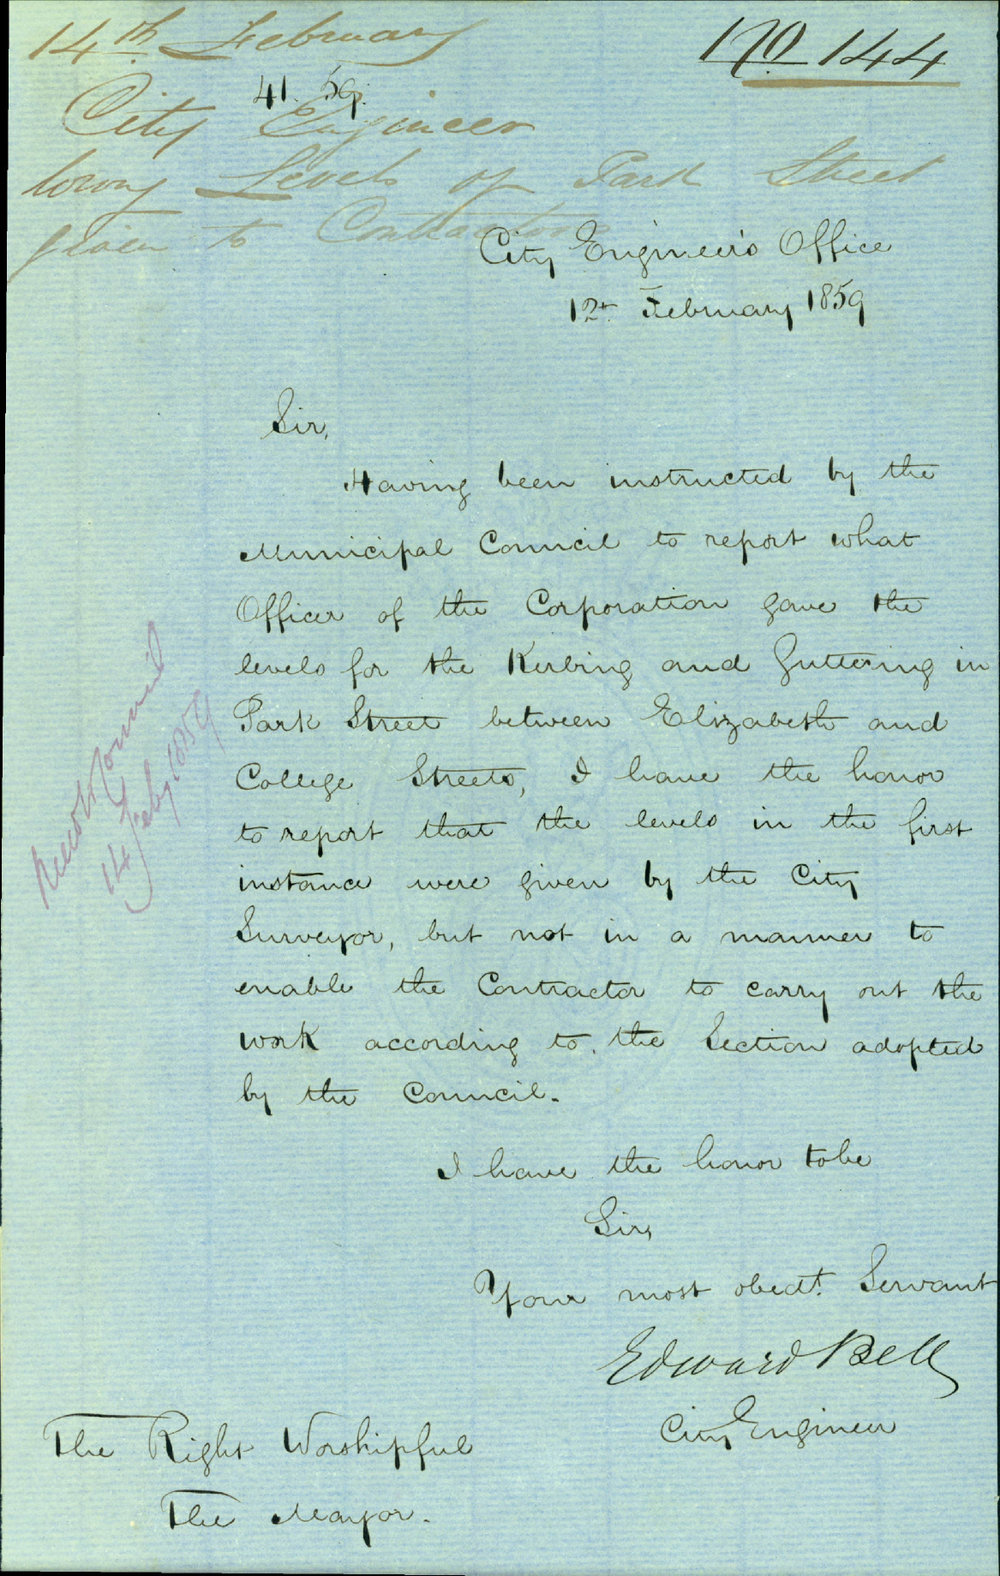 14th February
No 144
41. 59.
City Engineer
Levels of Park Street
given to Contractor
City Engineer's Office
12th February 1859
Sir,
Having been instructed by the
Municipal Council to report what
Officer of the Corporation gave the
levels for the Kerbing and Guttering in
Park Street between Elizabeth and
College Streets, I have the honor
to report that the levels in the first
instance were given by the City
Surveyor, but not in a manner to
enable the Contractor to carry out the
work according to the Section adopted
by the Council.
I have the honor to be
Sir,
Your most obedt. Servant
Edward Bell
City Engineer
The Right Worshipful
The Mayor.
Council
14 Feby 1859